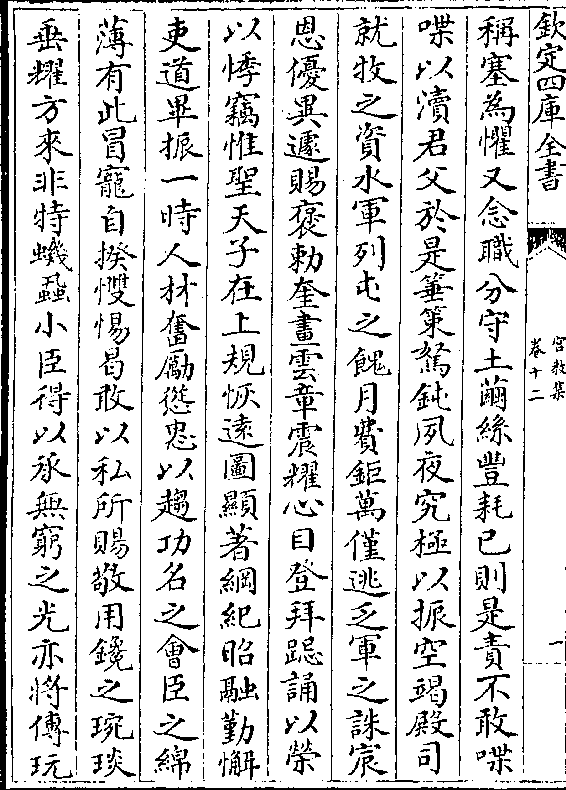 欽定四庫全書
宫教集
卷十二
一
稱塞為懼又念職分守土繭絲豐耗已則是責不敢喋
喋以瀆君父於是箠策駑鈍夙夜究極以振空竭殿司
就牧之資水軍列屯之餽月費鉅萬僅逃乏軍之誅宸
恩優異遽賜褒勅奎畫雲章震耀心目登拜跽誦以榮
以悸竊惟聖天子在上規恢遠圖顯著綱紀昭融勤懈
吏道畢振一時人材奮勵愆思以趨功名之會臣之綿
薄有此冒寵自揆慺惕曷敢以私所賜敬用鑱之琬琰
垂耀方來非特蟣蝨小臣得以承無窮之光亦將傳玩